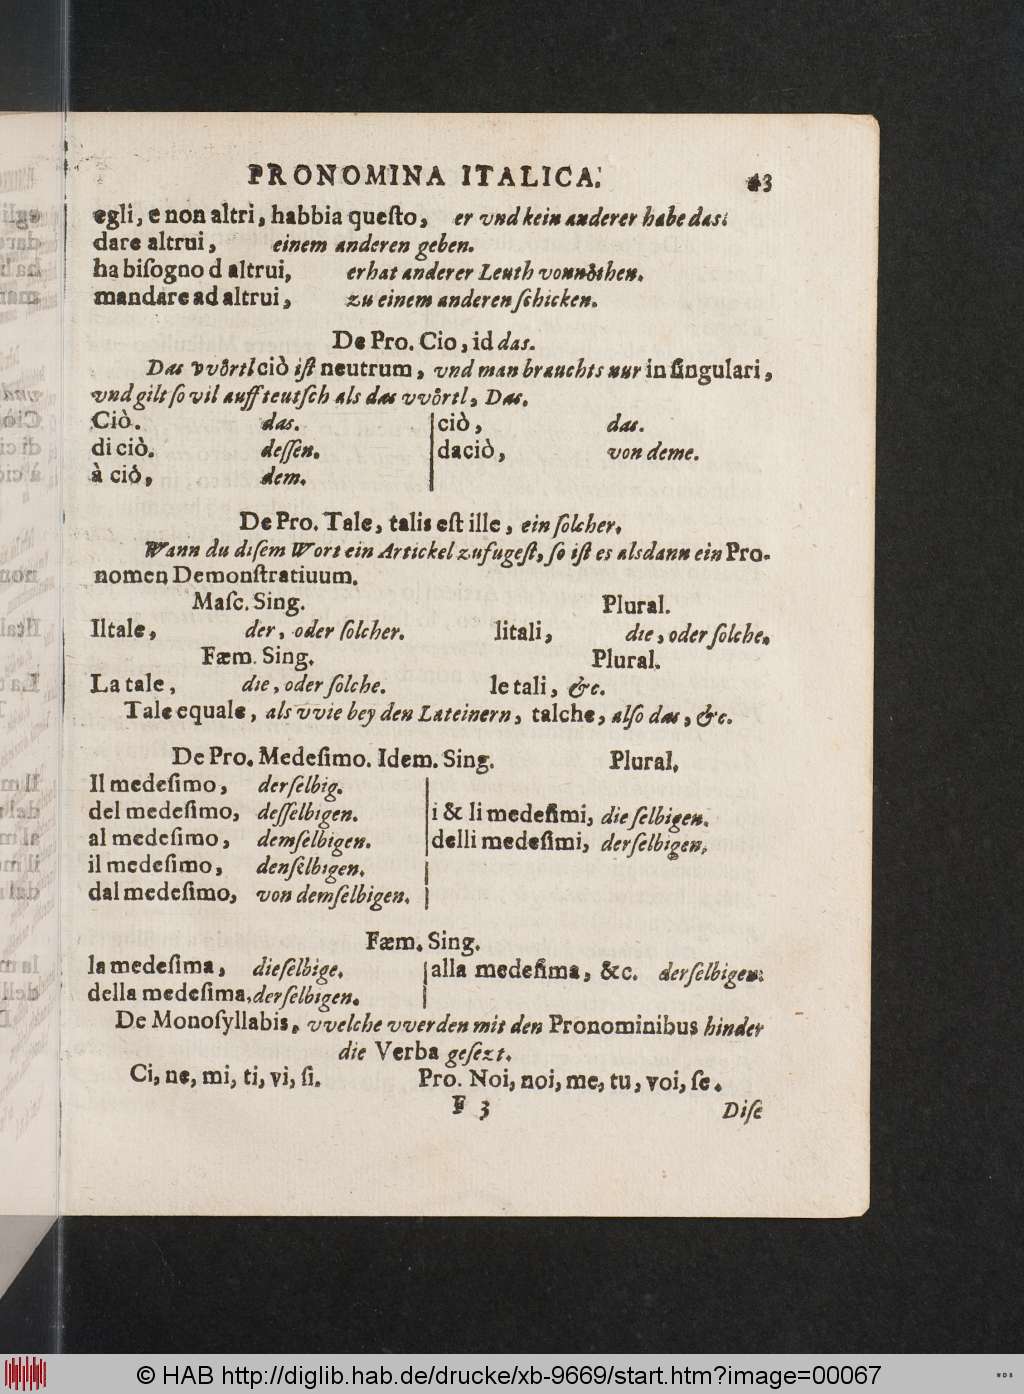 PRONOMINA ITALICA. 43
egli, e non altri, habbia queſto, er vnd kein anderer habe das.
dare altrui, einem anderen geben.
ha biſogno d altrui, er hat anderer Leuth vonnöthen.
mandare ad altrui, zu einem anderen ſchicken.
De Pro. Cio, id das.
Das vvörtl ciò iſt neutrum, vnd man brauchts nur in ſingulari,
vnd gilt ſo vil auff teutſch als das vvörtl, Das.
Ciò. das. ciò, das.
di ciò. deſſen. da ciò, von deme.
à ciò, dem.
De Pro. Tale, talis eſt ille, ein ſolcher.
Wann du diſem Wort ein Artickel zufugeſt, ſo iſt es alsdann ein Pro-
nomen Demonſtratiuum.
Maſc. Sing. Plural.
Il tale, der, oder ſolcher. li tali, die, oder ſolche.
Fæm. Sing. Plural.
La tale, die, oder ſolche. le tali, &c.
Tale equale, als vvie bey den Lateinern, talche, alſo das, &c.
De Pro. Medeſimo. Idem. Sing. Plural.
Il medeſimo, derſelbig.
del medeſimo, deſſelbigen. i & li medeſimi, die ſelbigen.
al medeſimo, demſelbigen. delli medeſimi, derſelbigen,
il medeſimo, denſelbigen.
dal medeſimo, von demſelbigen.
Fæm. Sing.
la medeſima, dieſelbige. alla medeſima, &c. derſelbigen.
della medeſima, derſelbigen.
De Monoſyllabis, vvelche vverden mit den Pronominibus hinder
die Verba geſezt.
Ci, ne, mi, ti, vi, ſi. Pro. Noi, noi, me, tu, voi, ſe.
F 3 Diſe
© HAB http://diglib.hab.de/drucke/xb-9669/start.htm?image=00067